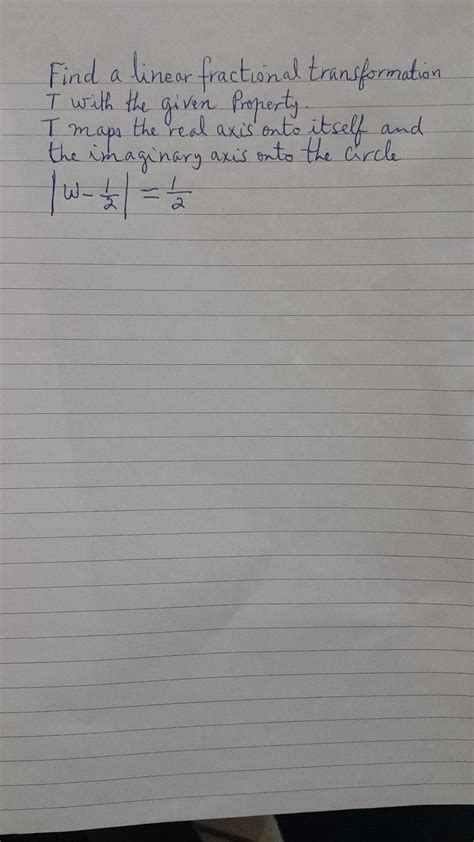 Find a linear fractional transformation
T with the given Property.
T maps the real axis onto itself and
the imaginary axis onto the Circle
|w - 1/2| = 1/2